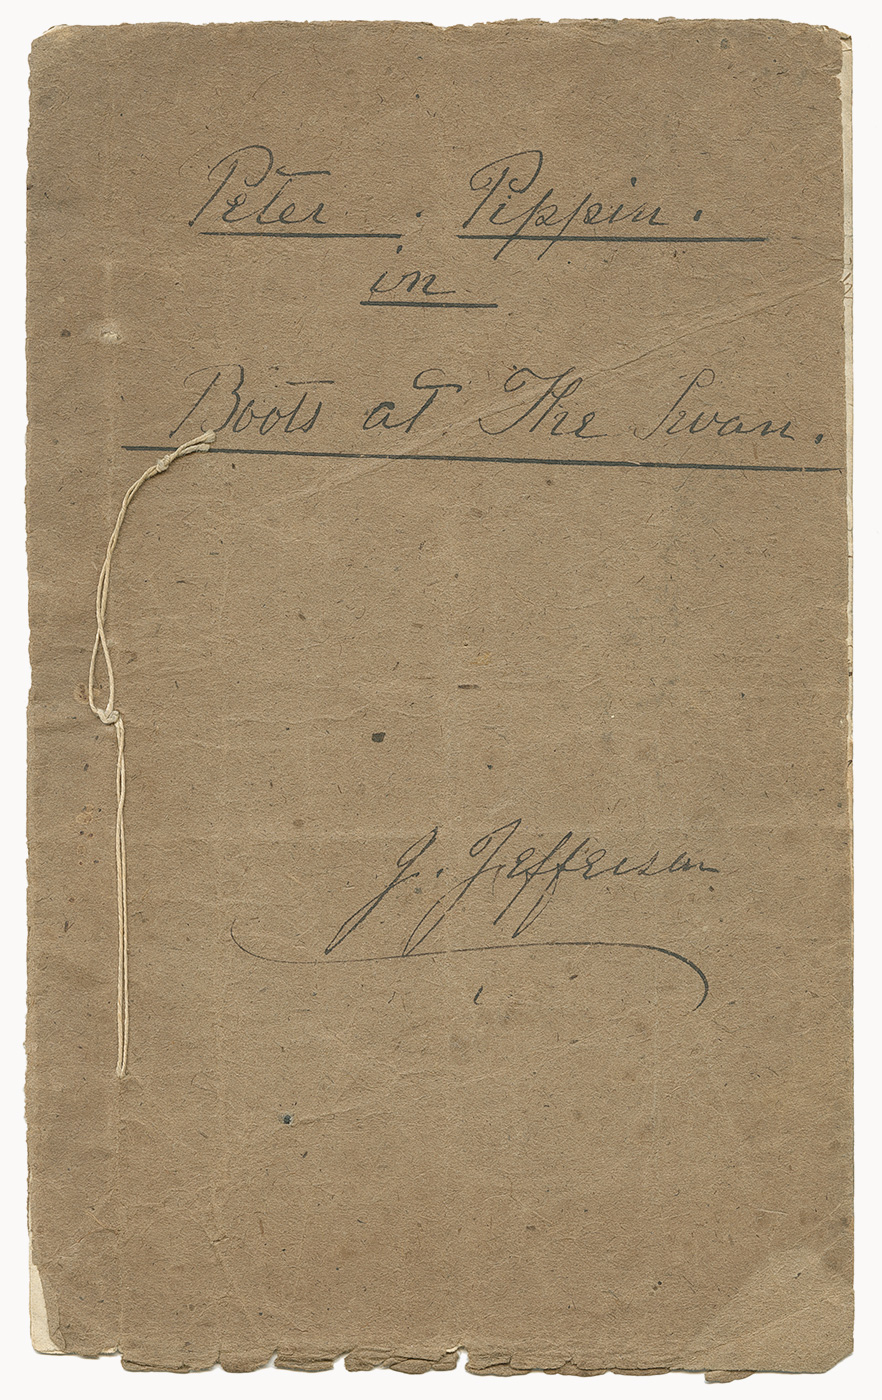 Peter. Pippin.
in
Boots at The Swan.
J. Jefferson